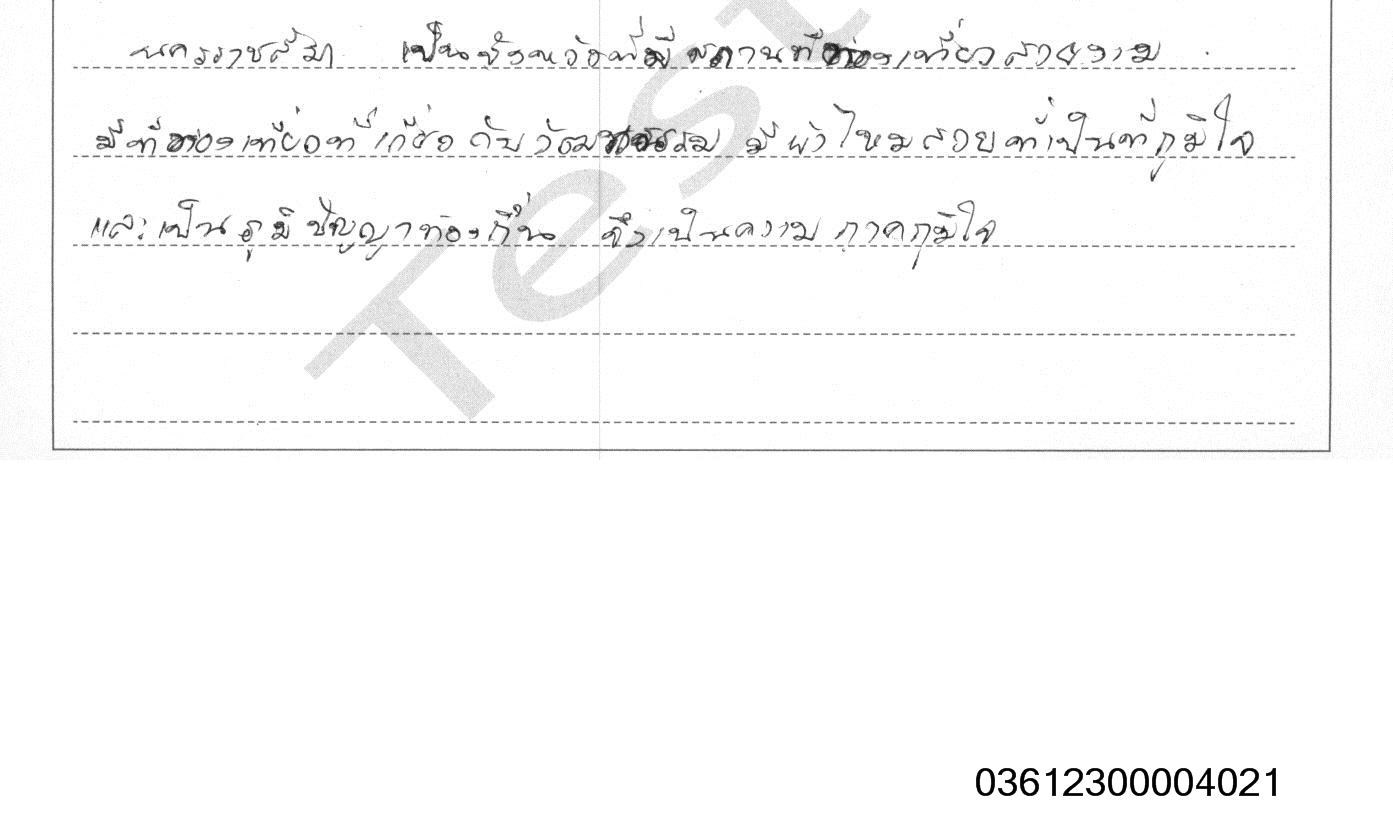 นครราชสีมา เป็นจังหวัดที่มีสถานที่ท่องเที่ยวสวยงาม
มีที่ท่องเที่ยวที่เกี่ยวกับวัฒนธรรม มีผ้าไหมสวยที่เป็นที่ภูมิใจ
และเป็นภูมิปัญญาท้องถิ่น จึงเป็นความภาคภูมิใจ
Test
03612300004021